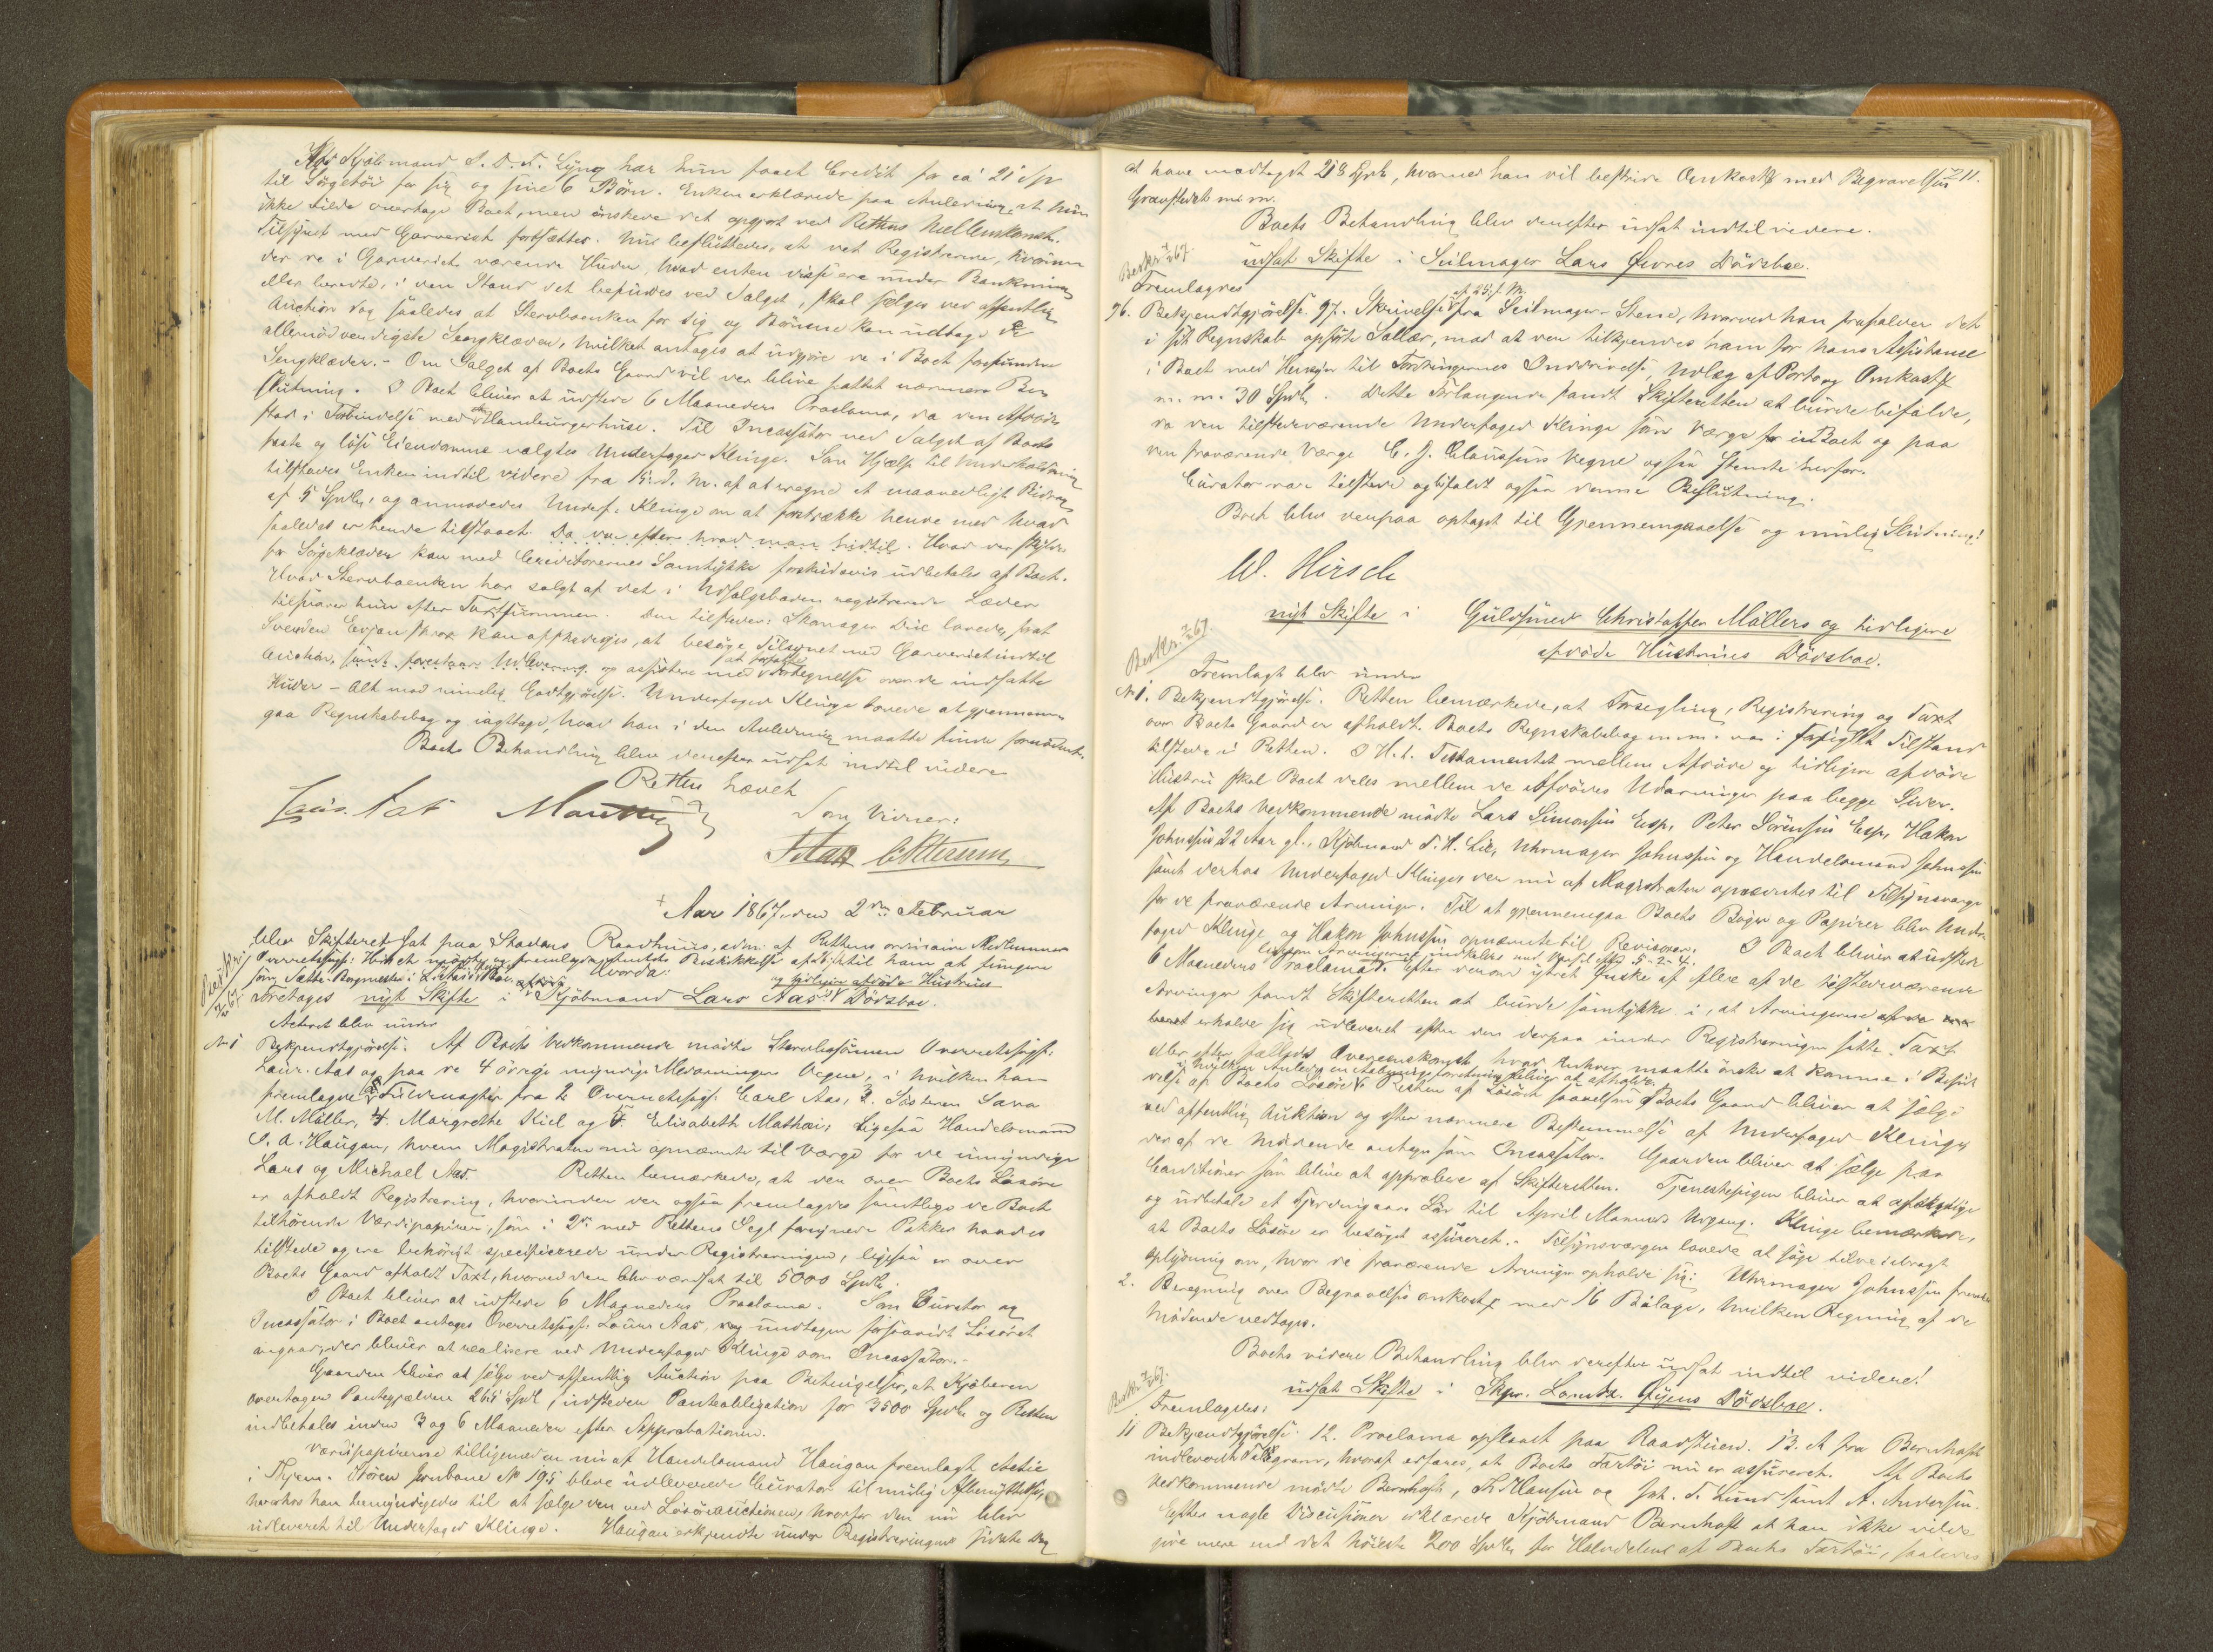 Hos Kjöbmand S. D. K. Lyng har hun faaet Credit for ca 21 Spd
til Sørgetöi for sig og sine 6 Börn. Enken erklærede paa Anledning, at hun
ikke vilde overtage Boet, men önskede det opgjort ved Rettens Mellemkomst.
Tilsynet med Garveriet fortsættes. Nu besluttedes, at det Registrerede, hvorunder
de i Garveriet værende Huder, hvad enten disse ere under Barkning
eller beredte, i den Stand det befindes ved Salget, skal sælges ved offentlig
Auction dog saaledes at Stervboenken for sig og Börnene kan udtage de
allernödvendigste Sengklæder, hvilket antages at udgjöre de i Boet forefundne
Sengklæder. - Om Salget af Boets Gaard vil der blive fattet nærmere Be-
slutning. I Boet bliver at udstede 6 Maaneders Proclama, da den Afdöde
stod i Forbindelse med Hamburgerhuse. Til Incassator ved Salget af Boets
faste og löse Eiendomme valgtes Underfoged Klinge. Som Hjælp til Underholdning
tilstodes Enken indtil videre fra 15. d. M. af at regne et maanedligt Bidrag
af 5 Spdlr, og anmodedes Underf. Klinge om at forstrække hende med hvad
saaledes er hende tilstaaet. Da der efter hvad man hidtil. Hvad der skyldes
for Sörgeklæder kan med Creditorernes Samtykke forskudsvis udbetales af Boet.
Hvad Stervboenken har solgt af det i Udsalgsboden registrerede Læder
tilsvarer hun efter Taxtsummen. Den tilstedev. Skomager Due lovede, saa
Svenden Evjan strax kan afskediges, at besörge Tilsynet med Garveriet indtil
Auction, samt forestaae Udlevering og assistere med at forfatte Fortegnelse over de indsatte
Huder - Alt mod rimelig Godtgjörelse. Underfoged Klinge lovede at gjennem-
gaa Regnskabsbog og iagttage, hvad han i den Anledning maatte finde fornödent.
Boets Behandling blev derefter udsat indtil videre
Retten hævet
Som Vidner:
Aar 1867 den 2den Februar
blev Skifteret sat paa Stadens Raadhuus, adm. af Rettens ordinaire Medlemmer
Hvorda:
Foretages nyt Skifte i Kjöbmand Lars Aas's og tidligere afdöde Hustrues Dödsboe.
Acteret blev under
No 1 Bekjendtgjörelse. Af Boets Vedkommende mödte Stervbosönnen Overretssagf.
Laur. Aas og paa de 4 övrige myndige Medarvingers Vegne, i hvilken han
fremlagde Fuldmagter fra 2 Overretssagf. Carl Aas, 3. Söstren Sara
M. Möller, 4. Margrethe Kiel og 5. Elisabeth Mathai; Ligesaa Handelsmand
O. A. Haugan, hvem Magistraten nu opnævnte til Værge for de umyndige
Lars og Michael Aas. Retten bemærkede, at der over Boets Lösöre
er afholdt Registrering, hvorunder der ogsaa fremlagdes samtlige de Boet
tilhörende Værdipapirer, som i 2de med Rettens Segl forsynede Pakker haves
tilstede og ere behörigt specificerede under Registreringen, ligesaa er over
Boets Gaard afholdt Taxt, hvorved den blev værdsat til 5000 Spdlr.
I Boet bliver at udstede 6 Maaneders Proclama. Som Curator og
Incassator i Boet antages Overretssagf. Laur Aas, dog undtagen forsaavidt Lösöret
angaar, der bliver at realisere ved Underfoged Klinge som Incassator. -
Gaarden bliver at sælge ved offentlig Auction paa Betingelser, at Kjöberen
overtager Pantegjælden 265 Spdl, udsteder Panteobligation for 3500 Spdlr og Resten
indbetales inden 3 og 6 Maaneder efter Approbationen.
Værdipapirerne tilligemed en nu af Handelsmand Haugan fremlagt Actie
i Thjem. Stören Jernbane No 195 bleve udleverede Curator til mulig Afbenyttelse,
hvorhos han bemyndigedes til at sælge den ved Lösöreauctionen, hvorfor den nu blev
udleveret til Underfoged Klinge. Haugan erkjendte under Registreringens sidste Dag
211.
at have modtaget 218 Spdlr, hvormed han vil bestride Omkostg med Begravelsen
Gravstedet m. m.
Boets Behandling blev derefter udsat indtil videre.
Bekr. 7/2 67.
udsat Skifte i Seilmager Lars Qvores Dödsboe.
Fremlagdes
96. Bekjendtgjörelse. 97. Skrivelse af 25 f. M. fra Seilmager Stene, hvorved han frafalder det
i sit Regnskab opförte Salær, mod at der tilkjendes ham for hans Assistance
i Boet med Hensyn til Fordringernes Inddrivelse, Udlæg af Porto og Omkostg
m. m. 30 Spdlr. Dette Forlangende fandt Skifteretten at burde bifalde,
da den tilstedeværende Underfoged Klinge som Værge for i Boet og paa
den fraværende Værge C. J. Clausens Vegne ogsaa stemte herfor.
Curator var tilstede og bifaldt ogsaa denne Beslutning.
Boet blev derpaa optaget til Gjennemgaaelse og mulig Slutning!
W. Hirsch
Bekr. 7/2 67.
nyt Skifte i Guldsmed Christoffer Möllers og tidligere
afdöde Hustrues Dödsboe.
Fremlagt blev under
No 1. Bekjendtgjörelse. Retten bemærkede, at Forsegling, Registrering og Taxt
over Boets Gaard er afholdt. Boets Regnskabsbog m. m. var i forseiglet Tilstand
tilstede i Retten. I H. t. Testamentet mellem Afdöde og tidligere afdöde
Hustru skal Boet deles mellem de Afdödes Udarvinger paa begge Sider.
Af Boets Vedkommende mödte Lars Simonsen Esp, Peter Sörensen Esp, Hakon
Johnsen 22 Aar gl., Kjöbmand S. H. Lie, Uhrmager Johnsen og Handelsmand Johnsen
samt derhos Underfoged Klinge, der nu af Magistraten opnævntes til Tilsynsværge
for de fraværende Arvinger. Til at gjennemgaa Boets Böger og Papirer blev Under-
foged Klinge og Hakon Johnsen opnævnte til Revisorer. I Boet bliver at udstede
6 Maaneders Proclama. Efter derom ytret Önske af flere af de tilstedeværende
Arvinger fandt Skifteretten at burde samtykke i, at Arvingerne
erholde sig udleveret efter den derpaa under Registreringen satte Taxt
eller efter fælleds Overenskomst hvad Enhver maatte önske at komme i Besid-
delse af Boets Lösöre, i hvilken Anledning en Auctionsforretning bliver at afholde. Resten af Lösöret saavelsom Boets Gaard bliver at sælge
ved offentlig Auktion og efter nærmere Bestemmelse af Underfoged Klinge,
der af de Mödende antoges som Incassator. Gaarden bliver at sælge paa
Conditioner som blive at approbere af Skifteretten. Tjenestepigen bliver at opsige
og udbetale et Fjerdingaars Lön til April Maaneds Udgang. Klinge bemærkede,
at Boets Lösöre er besörget assureret. - Tilsynsværgen lovede at söge tilveiebragt
oplysning om, hvor de fraværende Arvinger opholde sig: Uhrmager Johnsen fremla
2. Beregning over Begravelses omkostg med 16 Bilage, hvilken Regning af de
Mödende vedtoges.
Boets videre Behandling blev derefter udsat indtil videre!
Bekr. 7/2 67.
udsat Skifte i Skpr. Lorntz. Öyens Dödsboe.
Fremlagdes:
11 Bekjendtgjörelse. 12. Proclama opslaaet paa Raadstuen. 13. et fra Bernhoft
indleveret Telegram, hvoraf erfares, at Boets Fartöi nu er assureret. Af Boets
Vedkommende mödte Bernhoft, Fr. Hansen og Joh. F. Lund samt A. Andersen.
Efter nogle Discusioner erklærede Kjöbmand Bernhoft at han ikke vilde
give mere end det höieste 200 Spdlr for Halvdelen af Boets Fartöi, saaledes